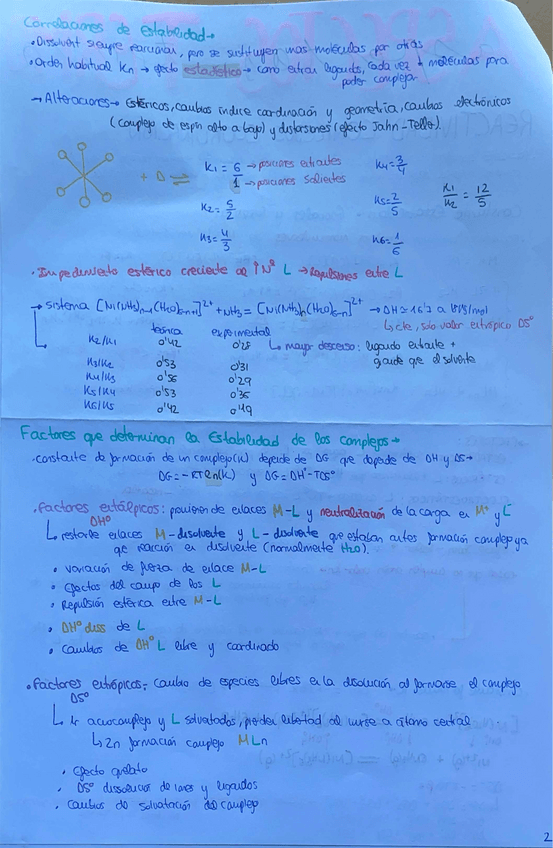 Correlaciones de estabilidad→
• Dissolvent siempre reaccionar, pero se sustituyen mas moléculas por otras
• Orden habitual Kn → efecto estadístico → como entran ligandos, cada vez + moléculas para
poder complejar
→ Alteraciones→ Estéricos, cambios índice coordinación y geometría, cambios electrónicos
(complejo de espín alto a bajo) y distorsiones (efecto Jahn-Teller).
+ 0 ⇌
K1 = 6/1 → posiciones entrantes
→ posiciones salientes
K4 = 3/4
K2 = 5/2
K5 = 2/5
K1/K2 = 12/5
K3 = 4/3
K6 = 1/6
• Impedimento estérico creciente al ↑Nº L → Repulsiones entre L
→ sistema [Ni(NH3)n-1(H2O)6-n+1]2+ + NH3 = [Ni(NH3)n(H2O)6-n]2+ → DH = 16'3 a
↳ cte, solo valor entrópico DSº
teórica experimental
K2/K1 0'42 0'28 ↳ mayor descenso: ligando entrante +
grande que el solvente
K3/K2 0'53 0'31
K4/K3 0'56 0'29
K5/K4 0'53 0'36
K6/K5 0'42 0'19
Factores que determinan la Estabilidad de los complejos→
• constante de formación de un complejo (K) depende de DG que depende de DH y DS→
DG = -RTLn(K) y DG = DHº - TDSº
• Factores entálpicos: provienen de enlaces M-L y neutralización de la carga en M+ y L-
DHº
↳ restarle enlaces M-disolvente y L-disolvente que estaban antes formación complejo ya
que reacción en disolvente (normalmente H2O).
• variación de fuerza de enlace M-L
• Efectos del campo de los L
• Repulsión estérica entre M-L
• DHº diss de L
• Cambios de DHº L libre y coordinado
• Factores entrópicos: Cambio de especies libres en la disolución al formarse el complejo
DSº
↳ acuocomplejo y L solvatados, pierden libertad al unirse a átomo central
↳ 2n formación complejo MLn
• Efecto quelato
• DSº disolución de iones y ligandos
• Cambios de solvatación del complejo
2